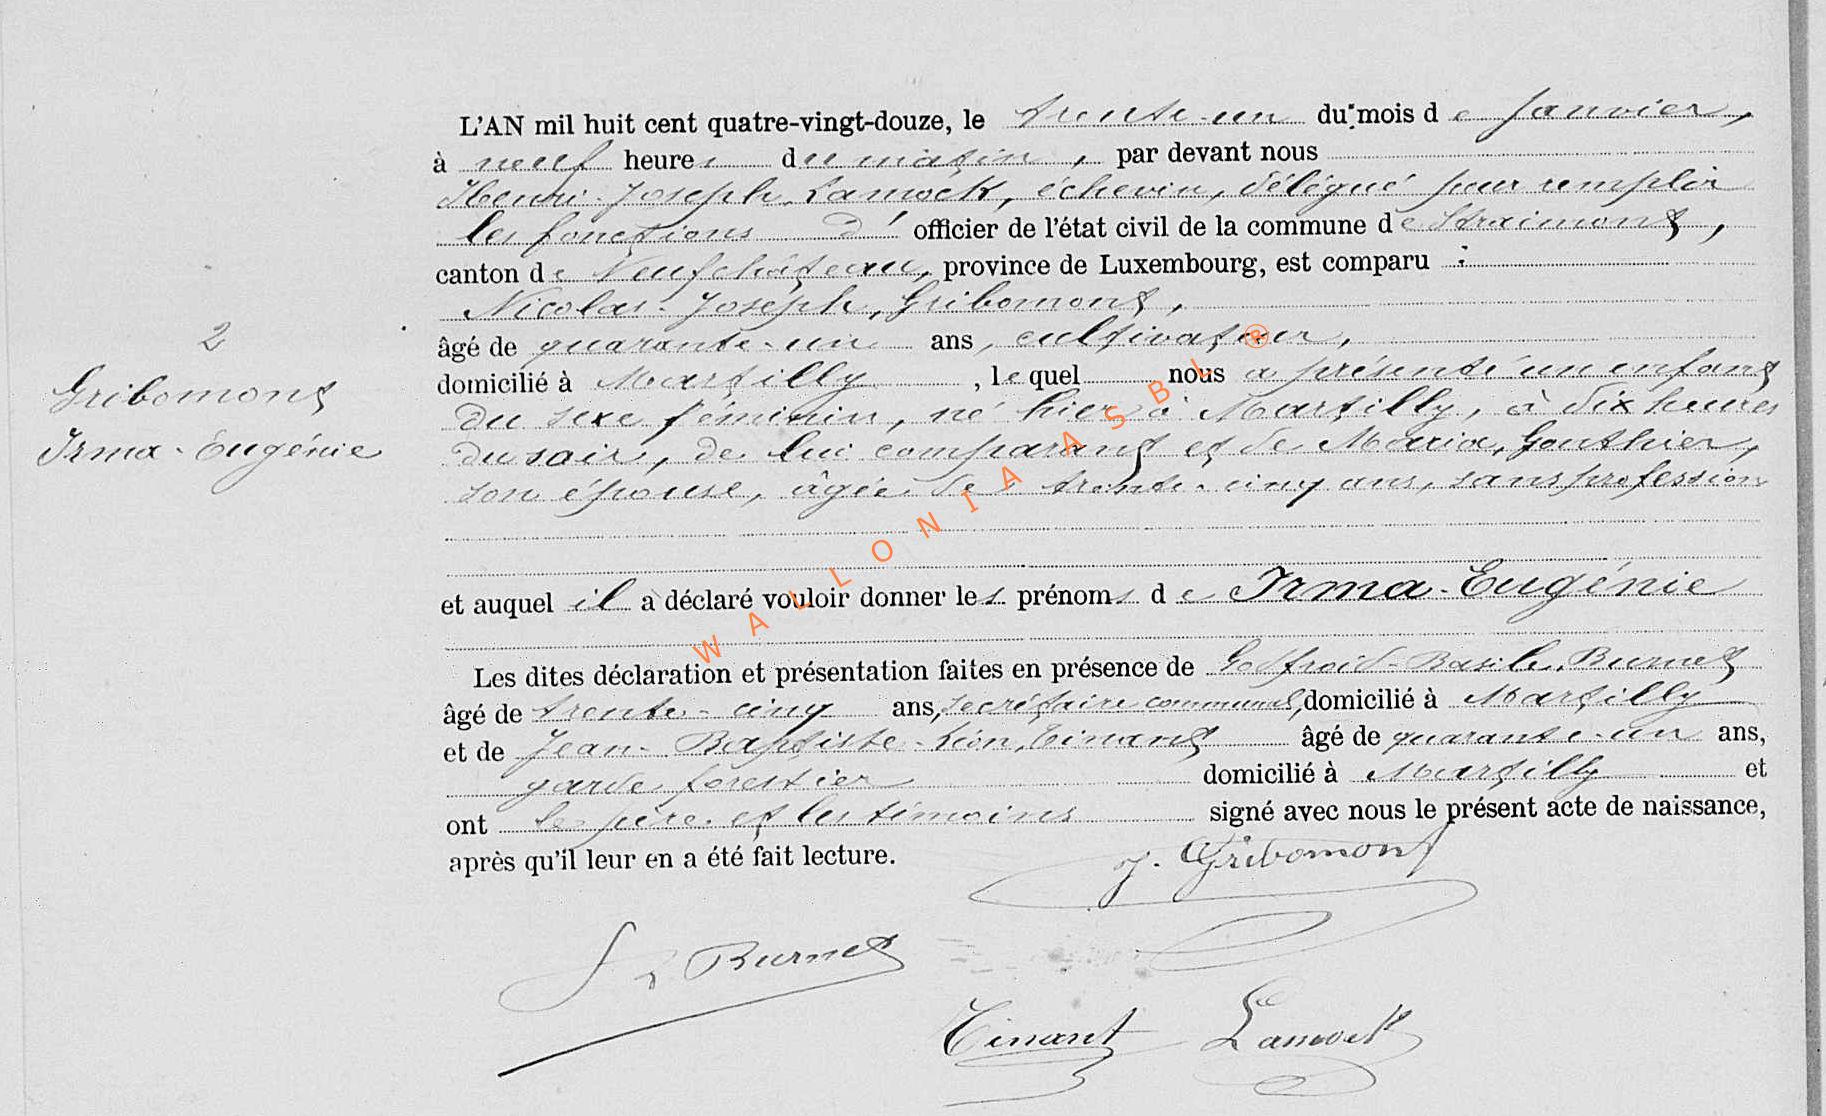 L'AN mil huit cent quatre-vingt-douze, le trente-un du mois de Janvier,
à neuf heures du matin, par devant nous
Henri-Joseph, Lamock, échevin, délégué pour remplir
les fonctions d' officier de l'état civil de la commune de Straimont,
canton de Neufchâteau, province de Luxembourg, est comparu :
Nicolas-Joseph, Gribomont,
âgé de quarante-un ans, cultivateur,
domicilié à Martilly, lequel nous a présenté un enfant
du sexe féminin, né hier à Martilly, à dix heures
du soir, de lui comparant et de Maria, Gouthier,
son épouse, âgée de trente-cinq ans, sans profession
et auquel il a déclaré vouloir donner les prénoms de Irma-Eugénie
Les dites déclaration et présentation faites en présence de Godfroid-Basile, Burnet
âgé de trente-cinq ans, secrétaire communal, domicilié à Martilly
et de Jean-Baptiste-Léon, Tinant âgé de quarante-un ans,
garde forestier domicilié à Martilly et
ont le père et les témoins signé avec nous le présent acte de naissance,
après qu'il leur en a été fait lecture.
2
Gribomont
Irma-Eugénie
J. Gribomont
Burnet
Tinant Lamock
WALLONIA ASBL ®